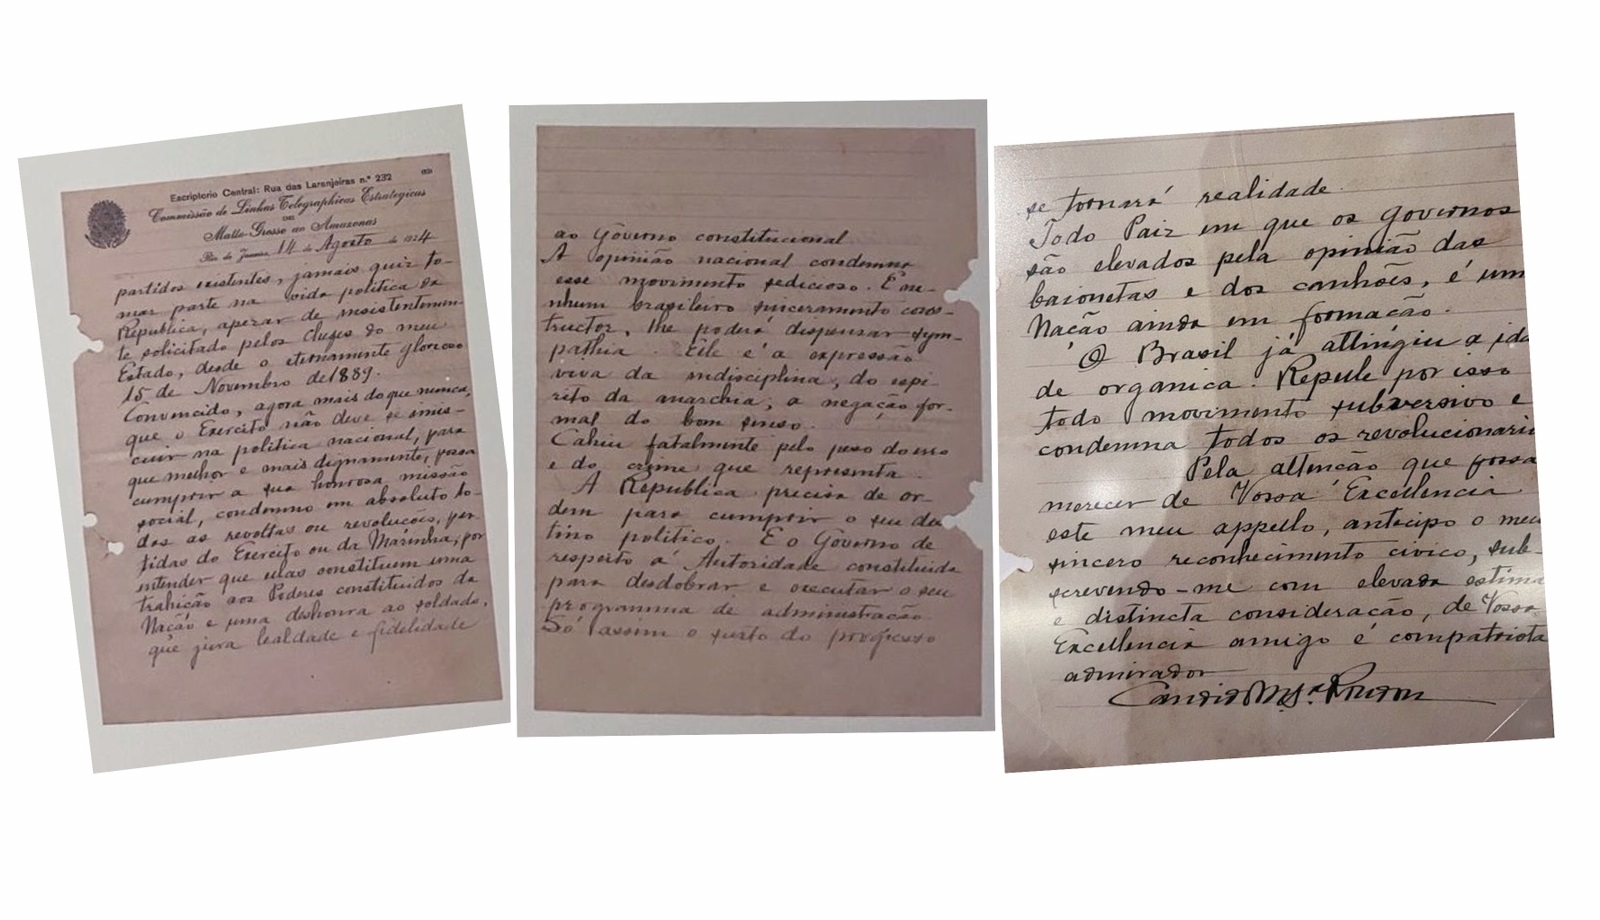 Escriptorio Central: Rua das Laranjeiras n.º 232
Commissão de Linhas Telegraphicas Estrategicas
DE
Matto-Grosso ao Amazonas
Rio de Janeiro, 14 de Agosto de 1924
partidos existentes, jamais quiz to-
mar parte na vida politica da
Republica, apezar de insistentemen-
te solicitado pelos Chefes do meu
Estado, desde o eternamente glorioso
15 de Novembro de 1889.
Convencido, agora mais do que nunca,
que o Exercito não deve se immis-
cuir na politica nacional, para
que melhor e mais dignamente, possa
cumprir a sua honrosa missão
social, condemno em absoluto to-
das as revoltas ou revoluções, par-
tidas do Exercito ou da Marinha, por
entender que ellas constituem uma
trahição aos Poderes constituidos da
Nação e uma deshonra ao soldado,
que jura lealdade e fidelidade
ao Governo constitucional
A opinião nacional condemna
esse movimento sedicioso. E ne-
nhum brasileiro sinceramente cons-
tructor, lhe poderá dispensar sym-
pathia. Elle é a expressão
viva da indisciplina, do espi-
rito da anarchia; a negação for-
mal do bom senso.
Cahiu fatalmente pelo peso do erro
e do crime que representa.
A Republica precisa de or-
dem para cumprir o seu des
tino politico. E o Governo de
respeito á Autoridade constituida
para desdobrar e executar o seu
programma de administração
Só assim o surto do progresso
se tornará realidade.
Todo Paiz em que os governos
são elevados pela opinião das
baionetas e dos canhões, é um
Nação ainda em formação.
O Brasil já attingiu a ida
de organica. Repule por isso
todo movimento subversivo e
condemna todos os revolucionari
Pela attenção que possa
merecer de Vossa Excellencia
este meu appello, antecipo o meu
sincero reconhecimento civico, sub-
screvendo-me com elevada estima
e distincta consideração, de Vossa
Excellencia amigo e compatriota
admirador
Candido M. S. Rondon